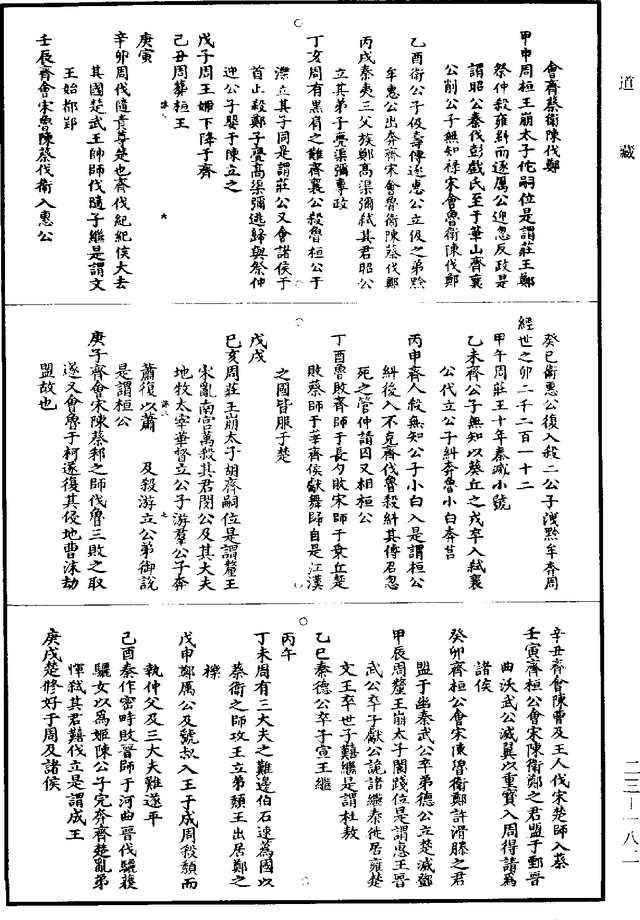 道藏
會齊蔡衛陳伐鄭
甲申周桓王崩太子佗嗣位是謂莊王鄭
祭仲殺雍糾而逐厲公迎忽反政是
謂昭公秦伐彭戲氏至于華山齊襄
公削公子無知祿宋會魯衛陳伐鄭
乙酉衛公子伋壽傅逐惠公立伋之弟黔
牟惠公出奔齊宋會魯衛陳蔡伐鄭
丙戌秦夷三父族鄭高渠彌弑其君昭公
立其弟子亹渠彌專政
丁亥周有黑肩之難齊襄公殺魯桓公于
濼立其子同是謂莊公又會諸侯于
首止殺鄭子亹高渠彌逃歸與祭仲
迎公子嬰于陳立之
戊子周王姬下降于齊
己丑周葬桓王
庚寅
辛卯周伐隨責尊楚也齊伐紀紀侯大去
其國楚武王帥師伐隨子繼是謂文
王始都郢
壬辰齊會宋魯陳蔡伐衛入惠公
癸巳衛惠公復入殺二公子洩黔牟奔周
經世之卯二千二百一十二
甲午周莊王十年秦滅小虢
乙未齊公子無知以葵丘之戍卒入弑襄
公代立公子糾奔魯小白奔莒
丙申齊人殺無知公子小白入是謂桓公
糾後入不克齊伐魯殺糾其傅召忽
死之管仲請囚又相桓公
丁酉魯敗齊師于長勺敗宋師于乘丘楚
敗蔡師于莘齊侯獻舞歸自是江漢
之國皆服于楚
戊戌
己亥周莊王崩太子胡齊嗣位是謂釐王
宋亂南宮萬殺其君閔公及其大夫
地牧太宰華督立公子游羣公子奔
蕭復以蕭 及殺游立公弟御說
是謂桓公
庚子齊會宋陳蔡邾之師伐魯三敗之取
遂又會魯于柯遂復其侵地曹沫劫
盟故也
辛丑齊會陳曹及王人伐宋楚師入蔡
壬寅齊桓公會宋陳衛鄭之君盟于鄄晉
曲沃武公滅翼以重寶入周得請為
諸侯
癸卯齊桓公會宋陳魯衛鄭許滑滕之君
盟于幽秦武公卒弟德公立楚滅鄧
甲辰周釐王崩太子閬踐位是謂惠王晉
武公卒子獻公詭諸繼秦徙居雍楚
文王卒世子囏繼是謂杜敖
乙巳秦德公卒子宣王繼
丙午
丁未周有三大夫之難邊伯石速蒍國以
蔡衛之師攻王立弟頹王出居鄭之
櫟
戊申鄭厲公及虢叔入王于成周殺頹而
執仲父及三大夫難遂平
己酉秦作密畤敗晉師于河曲晉伐驪獲
驪女以為姬陳公子完奔齊楚亂弟
惲弑其君囏代立是謂成王
庚戌楚修好于周及諸侯
二三—一八二